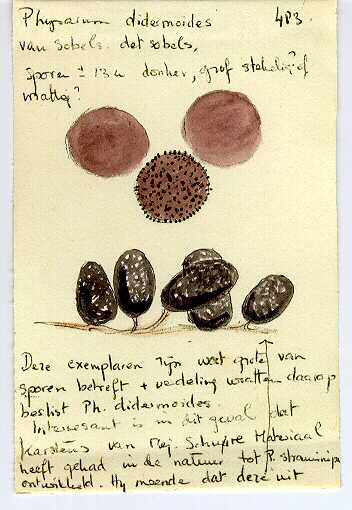 Physarum didermoides 483.
van Sobels. det sobels,
sporen ± 13 u donker, grof stekelig? of
wrattig?
Deze exemplaren zijn wat grote van
sporen betreft + verdeling wratten daarop
beslist Ph. didermoides.
Interessant is in dit geval dat
Karstens van Mej. Schuyre Materiaal
heeft gehad in de natuur tot P. straminipes
ontwikkeld. Hy meende dat deze uit